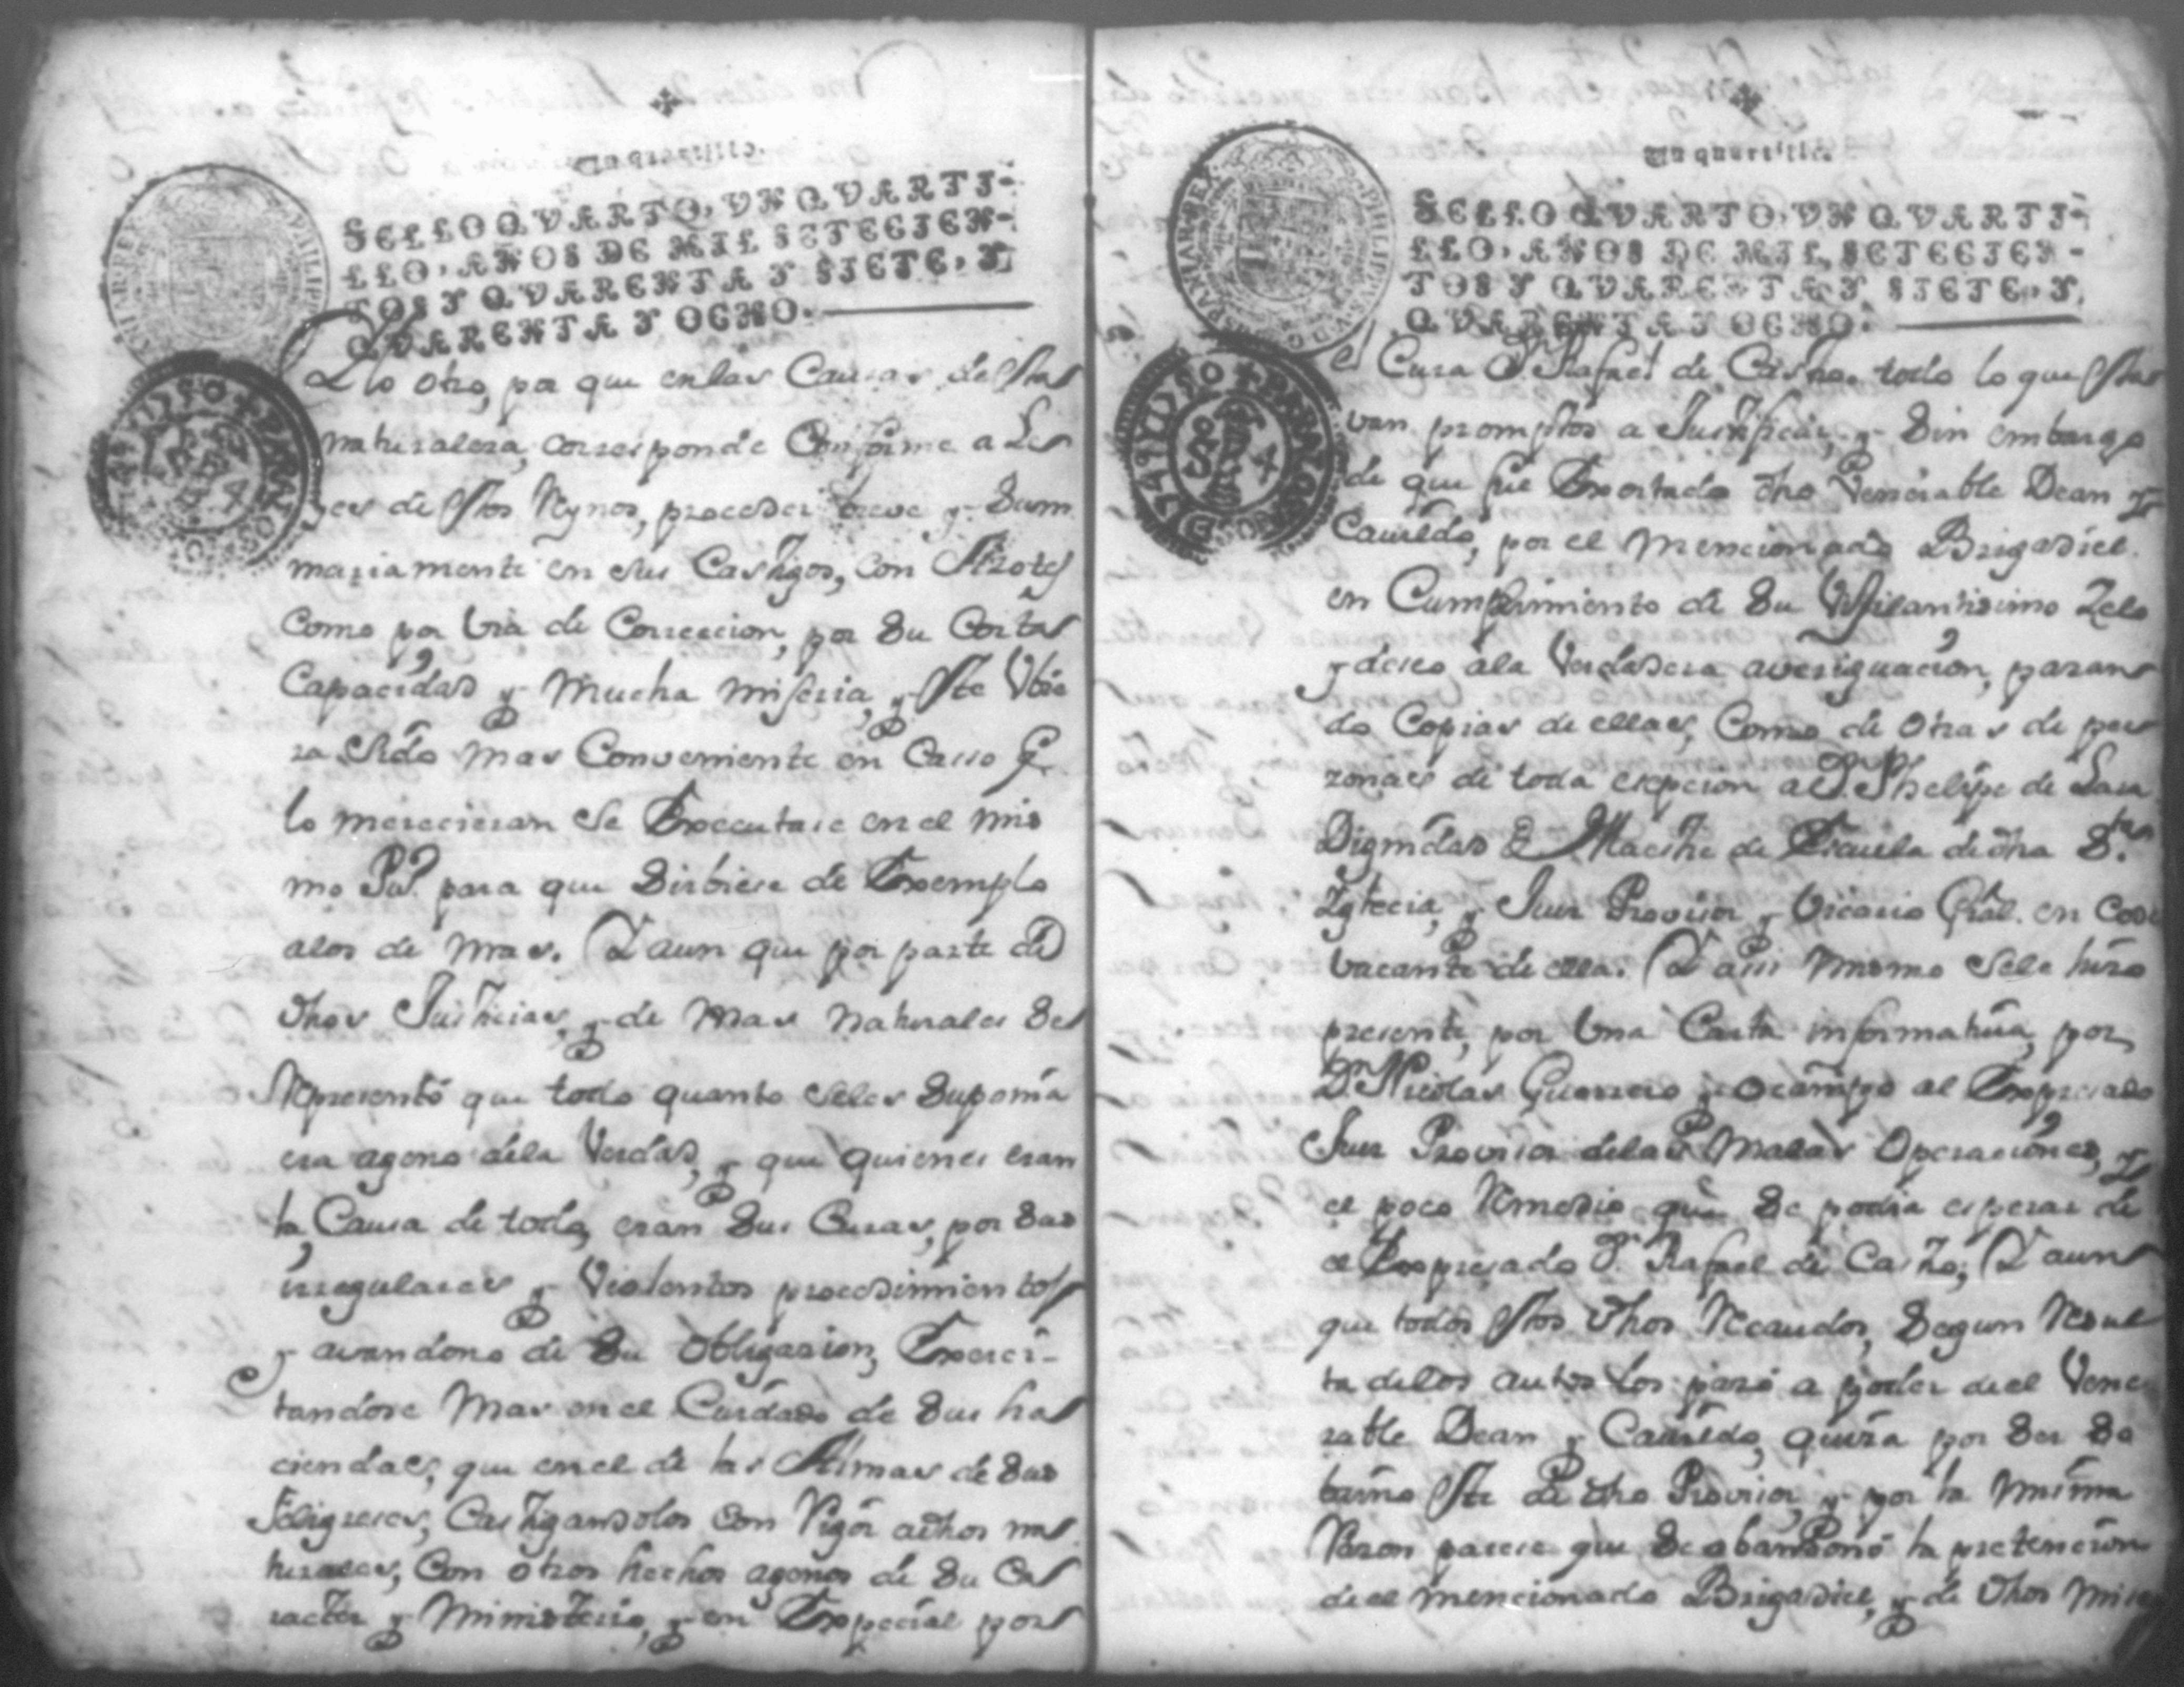 Un quartillo.
SELLO QVARTO, VN QVARTI-
LLO, AÑOS DE MIL SETECIEN-
TOS Y QVARENTA Y SIETE, Y
QVARENTA Y OCHO.
Lo otro, por que en las Causas de Sus
naturaleza, corresponde Conforme a Le
yes de estos Rynos, proceder breve y Sum
mariamente en sus Castigos, con Azotes
Como por Via de Correccion, por Su Corta
Capacidad y Mucha miseria, y este Ubie
ra Sido mas Conveniente en Casso q.
lo merecieran Se Executase en el mis
mo Pu.º para que Sirbiese de Exemplo
alos de mas. Y aun que por parte de
dhos Justicias, y de mas Naturales Se
Represento que todo quanto Seles Suponia
era ageno dela Verdad, y que quienes eran
la Causa de todo, eran Sus Curas, por Sus
irregulares y Violentos procedimientos
y avandono de Su Obligasion, Exerci-
tandose Mas en el Cuidado de Sus ha
ciendas, que en el de las Almas de Sus
Feligreses, Castigandolos Con Rigor adhos na
turales, Con otros hechos agenos de Su Ca
racter y Ministerio, y en Especial por
Un quartillo.
SELLO QVARTO, VN QVARTI-
LLO, AÑOS DE MIL SETECIEN-
TOS Y QVARENTA Y SIETE, Y
QVARENTA Y OCHO.
el Cura Dn Rafael de Castro. todo lo que Esta
van promptos a Justificar, y Sin embargo
de que fue Exortado dho Venerable Dean y
Cavildo, por el mencionado Brigadiel
en Cumplimiento de Su Vigilantisimo Zelo
y deseo ala Verdadera averiguacion, pasan
do Copias de ellas, Como de Otras de per
zonas de toda esepcion al Dn Phelipe de Lara
Dignidad de Maestre de Escuela de dha S.ta
Yglecia, y Juez Provisor y Vicario Gral. en Cede
Vacante de ella. Y assi mismo Sele hizo
presente, por Una Carta informatiua, por
Dn Nicolas Guerrero y Ocampo al Expresado
Juez Provisor delas Malas Operaciones, y
el poco Remedio que Se podia esperar de
el Expresado Dn Rafael de Castro; Y aun
que todos estos dhos Recaudos, Segun Resul
ta delos autos los paso a poder de el Vene
rable Dean y Cavildo, quiza por Ser So
brino Este de dho Provisor, y por la misma
Razon parece que Se abandonó la pretencion
de el mencionado Brigadiel, y de dhos Mise